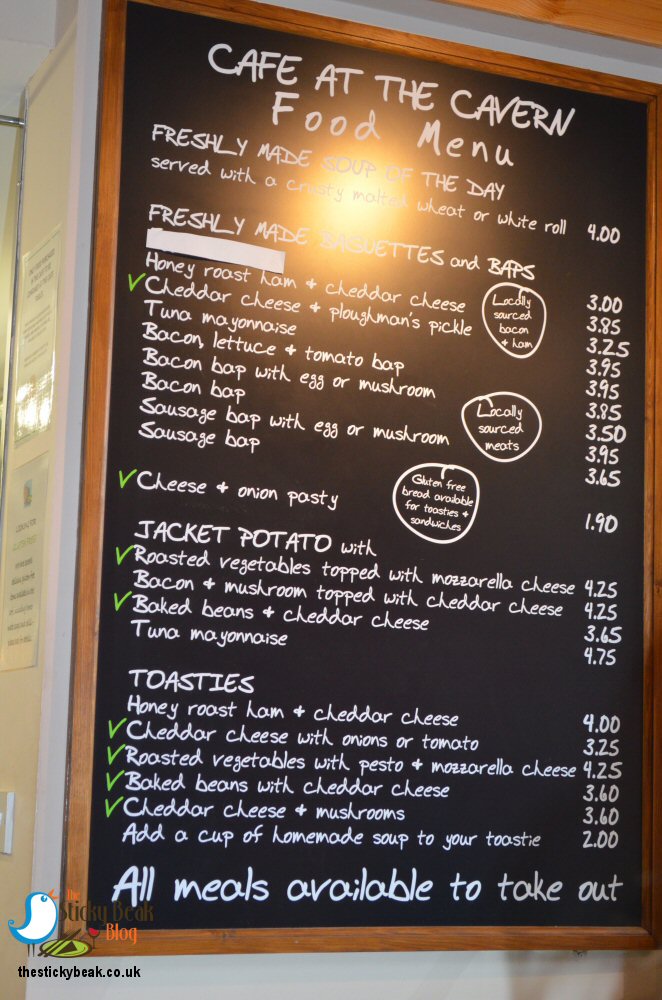 CAFE AT THE CAVERN
Food Menu
FRESHLY MADE SOUP OF THE DAY
served with a crusty malted wheat or white roll 4.00
FRESHLY MADE BAGUETTES and BAPS
3.00
Honey roast ham & cheddar cheese 3.85
✓ Cheddar cheese & ploughman's pickle 3.25
Tuna mayonnaise 3.95
Bacon, lettuce & tomato bap 3.95
Bacon bap with egg or mushroom 3.85
Bacon bap 3.50
Sausage bap with egg or mushroom 3.95
Sausage bap 3.65
Locally
sourced
bacon
& ham
Locally
sourced
meats
✓ Cheese & onion pasty 1.90
Gluten free
bread available
for toasties &
sandwiches
JACKET POTATO with
✓ Roasted vegetables topped with mozzarella cheese 4.25
Bacon & mushroom topped with cheddar cheese 4.25
✓ Baked beans & cheddar cheese 3.65
Tuna mayonnaise 4.75
TOASTIES
Honey roast ham & cheddar cheese 4.00
✓ Cheddar cheese with onions or tomato 3.25
✓ Roasted vegetables with pesto & mozzarella cheese 4.25
✓ Baked beans with cheddar cheese 3.60
✓ Cheddar cheese & mushrooms 3.60
Add a cup of homemade soup to your toastie 2.00
All meals available to take out
The
Sticky Beak
Blog
thestickybeak.co.uk